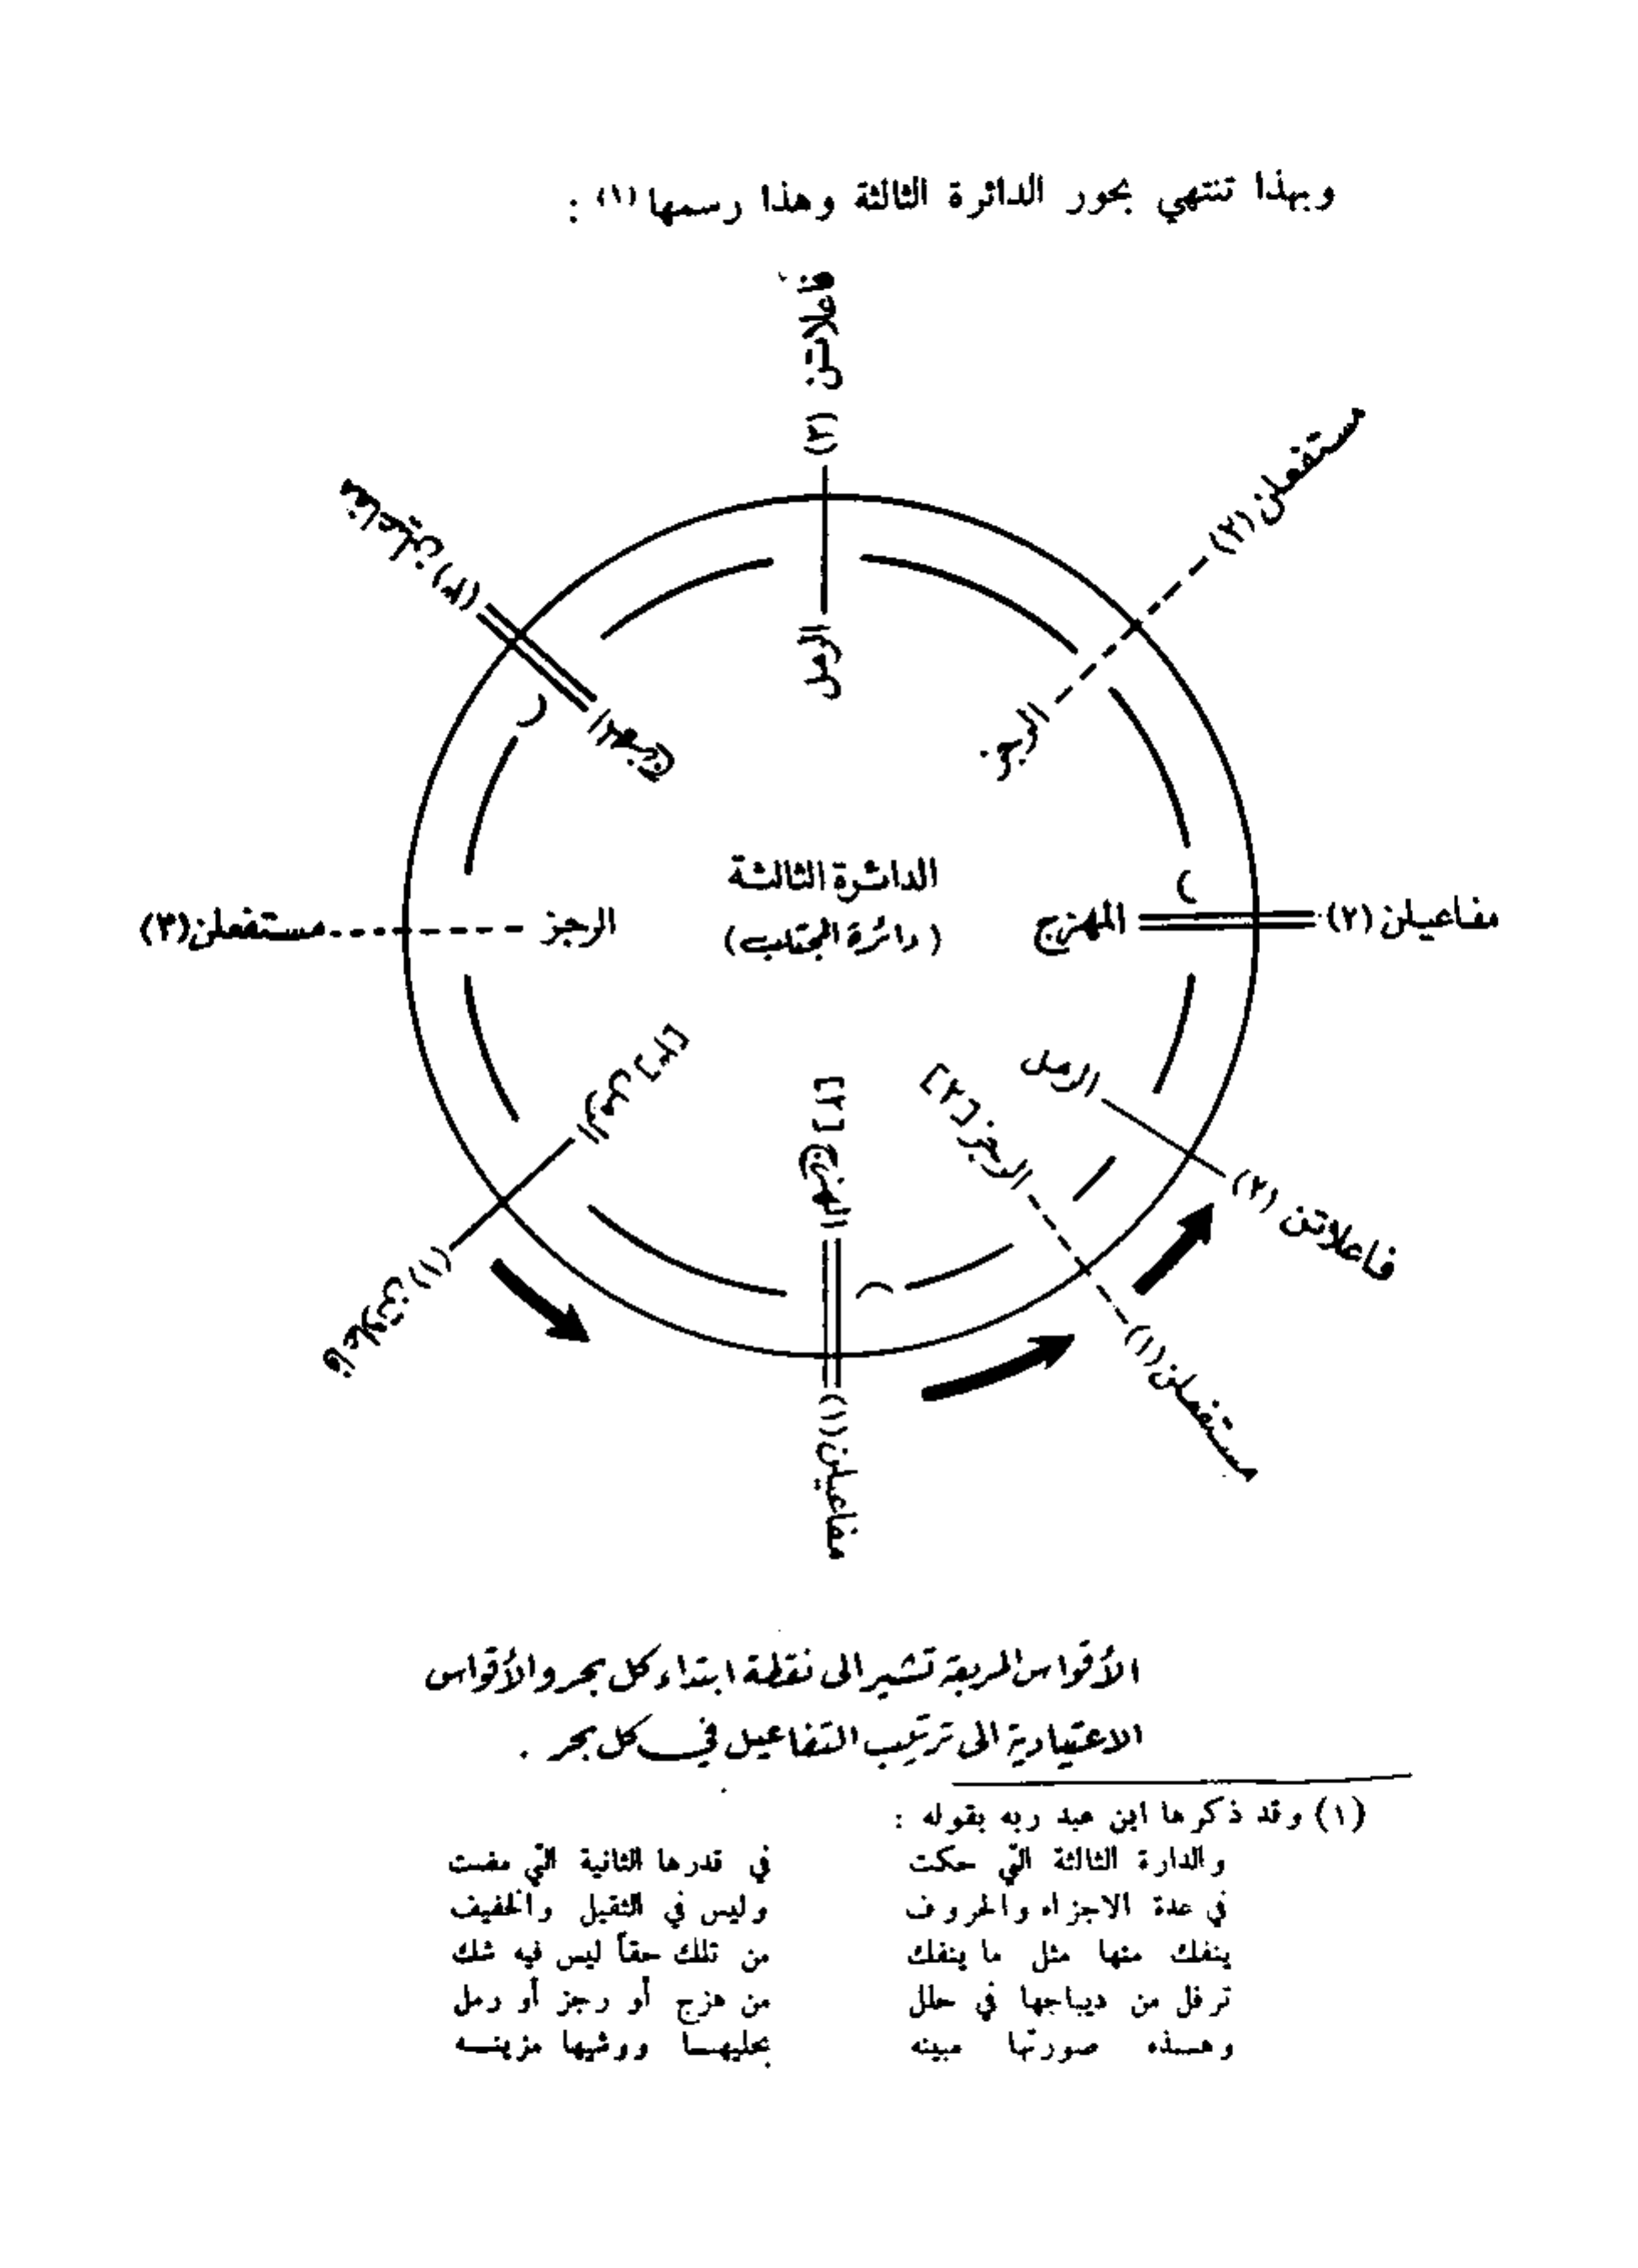 وبهذا تنتهي بحور الدائرة الثالثة وهذا رسمها (١) :
فاعلاتن (٣)
الرمل
مستفعلن (٢)
الرجز
مفاعيلن (٢)
الهزج
الرمل
فاعلاتن (٢)
الرجز [٢]
مستفعلن (١)
الهزج [٢]
مفاعيلن (١)
الرمل
فاعلاتن (١)
مستفعلن (٣)
الرجز
الهزج
الدائرة الثالثة
(دائرة المجتلب)
الأقواس المربعة تشير الى نقطة ابتداء كل بحر والأقواس
الاعتيادية الى ترتيب التفاعيل في كل بحر .
(١) وقد ذكرها ابن عبد ربه بقوله :
والدارة الثالثة التي حكت في قدرها الثانية التي مضت
في عدة الاجزاء والحروف وليس في الثقيل والخفيف
ينفك منها مثل ما ينفك من تلك حقاً ليس فيه شك
ترفل من ديباجها في حلل من هزج أو رجز أو رمل
وهذه صورتها مبينه بحليها ووشيها مزينه